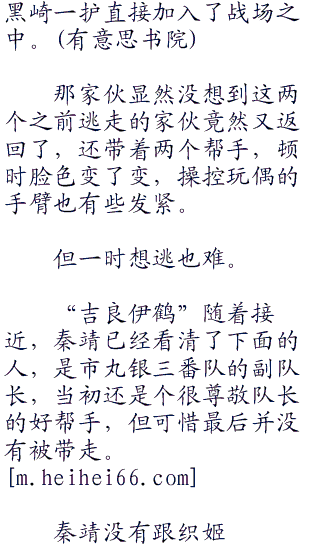 黑崎一护直接加入了战场之
中。(有意思书院)
那家伙显然没想到这两
个之前逃走的家伙竟然又返
回了，还带着两个帮手，顿
时脸色变了变，操控玩偶的
手臂也有些发紧。
但一时想逃也难。
“吉良伊鹤”随着接
近，秦靖已经看清了下面的
人，是市丸银三番队的副队
长，当初还是个很尊敬队长
的好帮手，但可惜最后并没
有被带走。
[m.heihei66.com]
秦靖没有跟织姬